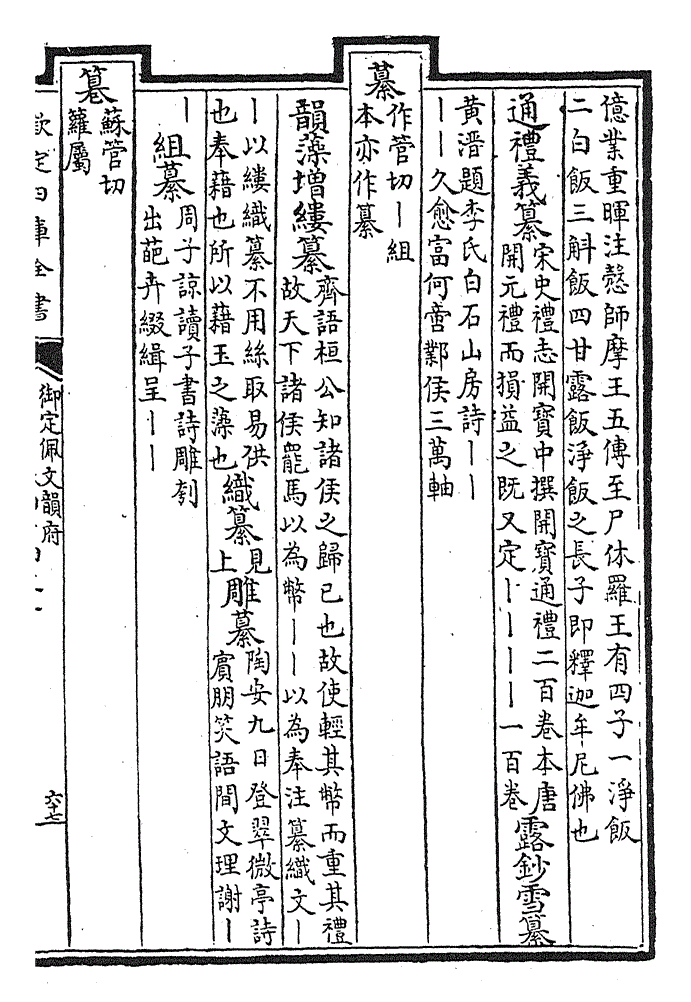 億業重暉注憨師摩王五傳至尸休羅王有四子一淨飯
二白飯三斛飯四甘露飯淨飯之長子即釋迦牟尼佛也
通禮義纂宋史禮志開寶中撰開寶通禮二百卷本唐
開元禮而損益之既又定丨丨丨丨一百卷露鈔雪纂
黃溍題李氏白石山房詩丨丨
丨丨久愈富何啻鄴侯三萬軸
纂作管切丨組
本亦作纂
韻藻增縷纂齊語桓公知諸侯之歸已也故使輕其幣而重其禮
故天下諸侯罷馬以為幣丨丨以為奉注纂織文丨
丨以縷織纂不用絲取易供
也奉藉也所以藉玉之藻也織纂見
上雕纂陶安九日登翠微亭詩
賓朋笑語間文理謝丨
丨組纂周子諒讀子書詩雕刻
出葩卉綴緝呈丨丨
䉤蘇管切
籮屬
欽定四庫全書
御定佩文韻府
六十七